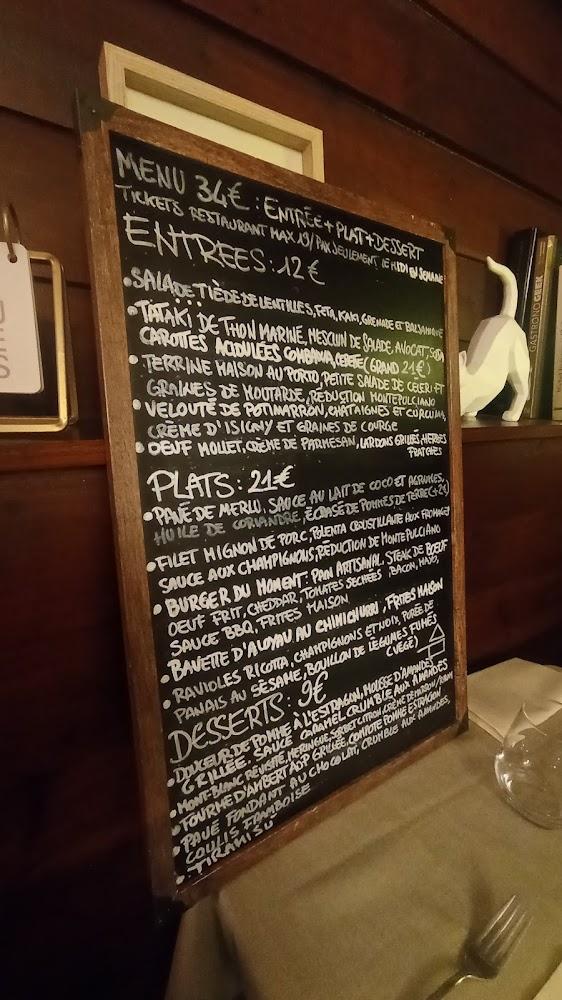 MENU 34€ : ENTRÉE + PLAT + DESSERT
TICKETS RESTAURANT MAX 19/PAX SEULEMENT LE MIDI EN SEMAINE
ENTREES : 12€
• SALADE TIÈDE DE LENTILLES, FETA, KAKI, GRENADE ET BALSAMIQUE
• TATAKI DE THON MARINÉ, MESCLUN DE SALADE, AVOCAT, SOJA
CAROTTES ACIDULÉES COMBAWA, (GRAND 21€)
• TERRINE MAISON AU PORTO, PETITE SALADE DE CÉLERI ET
GRAINES DE MOUTARDE, RÉDUCTION MONTEPULCIANO
• VELOUTÉ DE POTIMARRON, CHATAIGNES ET CURCUMA,
CRÈME D'ISIGNY ET GRAINES DE COURGE
• OEUF MOLLET, CRÈME DE PARMESAN, LARDONS GRILLÉS, HERBES
FRAÎCHES
PLATS : 21€
• PAVÉ DE MERLU, SAUCE AU LAIT DE COCO ET AGRUMES,
HUILE DE CORIANDRE, ÉCRASÉ DE POMMES DE TERRE (+2€)
• FILET MIGNON DE PORC, POLENTA CROUSTILLANTE AUX FROMAGES
SAUCE AUX CHAMPIGNONS, RÉDUCTION DE MONTEPULCIANO
• BURGER DU MOMENT : PAIN ARTISANAL, STEAK DE BOEUF
OEUF FRIT, CHEDDAR, TOMATES SECHÉES, BACON, MAYO,
SAUCE BBQ, FRITES MAISON
• BAVETTE D'ALOYAU AU CHIMICHURRI, FRITES MAISON
• RAVIOLES RICOTTA, CHAMPIGNONS ET NOIX, PURÉE DE
PANAIS AU SÉSAME, BOUILLON DE LÉGUMES FUMÉS
(VÉGÉ)
DESSERTS : 9€
• DOUCEUR DE POMME À L'ESTRAGON, MOUSSE D'AMANDES
GRILLÉE, SAUCE CARAMEL, CRUMBLE AUX AMANDES
• MONT-BLANC REVISITÉ, MERINGUE, SORBET CITRON, CRÈME DE MARRON/RHUM
• FOURME D'AMBERT AOP GRILLÉE, COMPOTE POMME ESTRAGON
• PAVÉ FONDANT AU CHOCOLAT, CRUMBLE AUX AMANDES,
COULIS FRAMBOISE
• TIRAMISU
GASTRONOGEEK